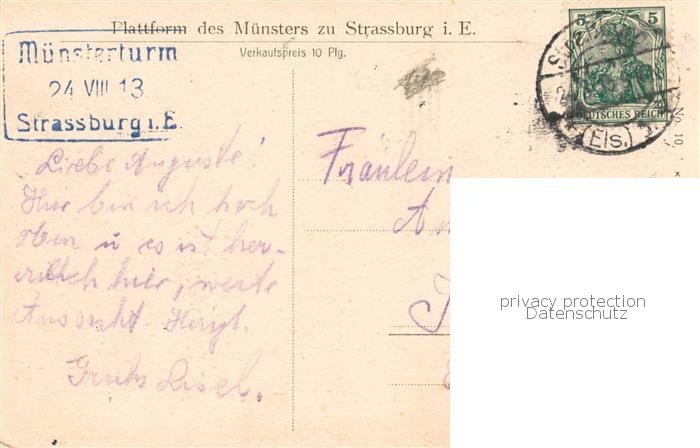 Plattform des Münsters zu Strassburg i. E.
Verkaufspreis 10 Pfg.
Münsterturm
24 VIII 13
Strassburg i. E.
5 5
DEUTSCHES REICH
(Els.)
No. 10
Liebe Auguste!
Hier bin ich hoch
oben u es ist her-
rlich hier, weite
Aussicht. Herzl.
Gruß Lisel.
Fräulein
privacy protection
Datenschutz